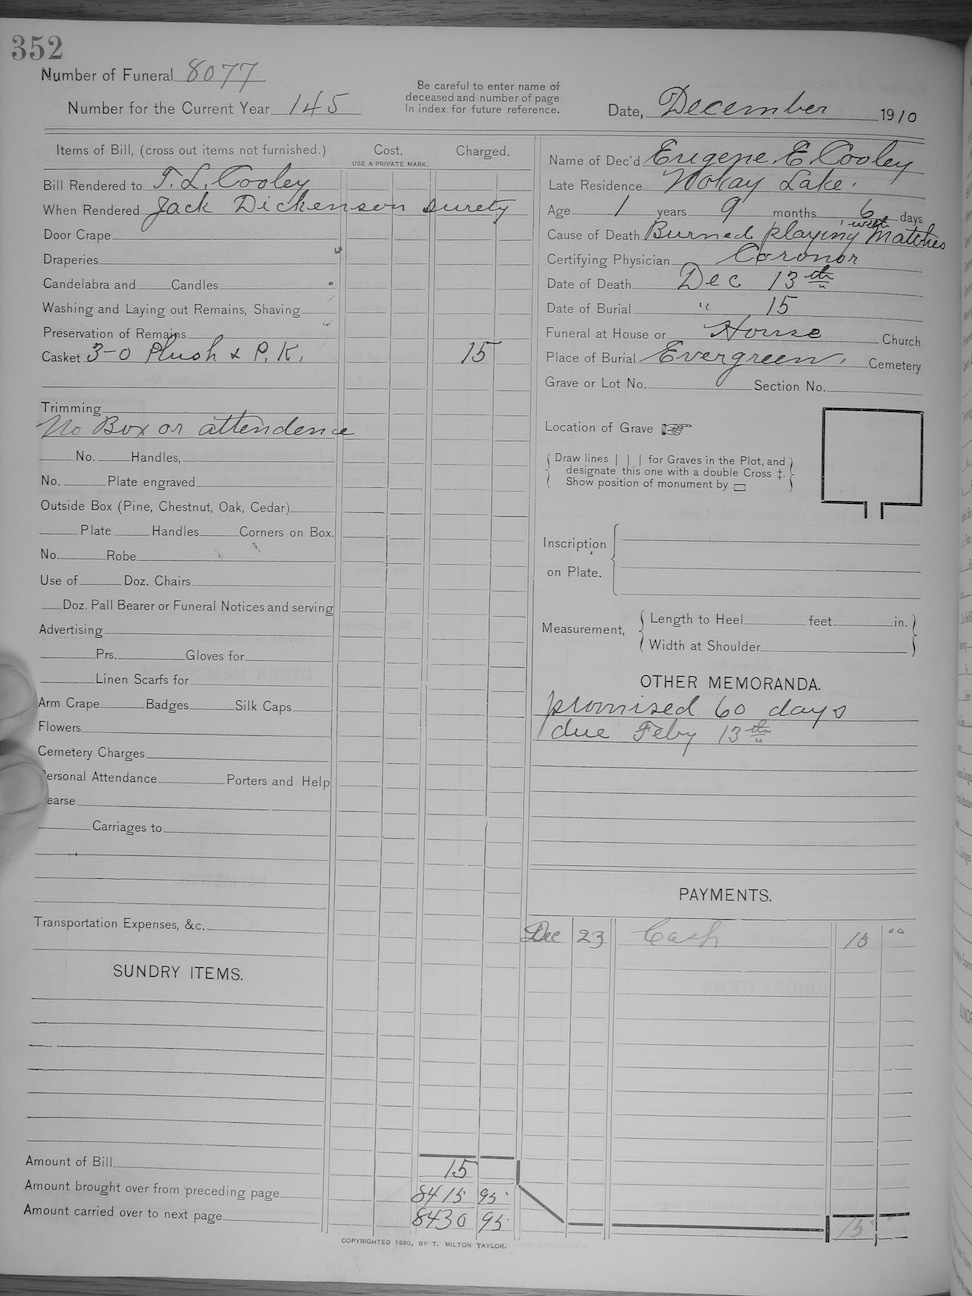 352
Number of Funeral 8077
Number for the Current Year 145
Be careful to enter name of
deceased and number of page
in index for future reference.
Date, December 1910
Items of Bill, (cross out items not furnished.) Cost. Charged.
USE A PRIVATE MARK.
Bill Rendered to T. L. Cooley
When Rendered Jack Dickenson surety
Door Crape
Draperies
Candelabra and Candles
Washing and Laying out Remains, Shaving
Preservation of Remains
Casket 3-0 Plush & P. K. 15
Trimming
No Box or attendence
No. Handles,
No. Plate engraved
Outside Box (Pine, Chestnut, Oak, Cedar)
Plate Handles Corners on Box.
No. Robe
Use of Doz. Chairs
Doz. Pall Bearer or Funeral Notices and serving
Advertising
Prs. Gloves for
Linen Scarfs for
Arm Crape Badges Silk Caps
Flowers
Cemetery Charges
ersonal Attendance Porters and Help
earse
Carriages to
Transportation Expenses, &c.
SUNDRY ITEMS.
Amount of Bill 15
Amount brought over from preceding page 8415 95
Amount carried over to next page 8430 95
Name of Dec'd Eugene E. Cooley
Late Residence Nokay Lake.
Age 1 years 9 months 6 days
Cause of Death Burned playing with Matches
Certifying Physician Coronor
Date of Death Dec 13th
Date of Burial " 15
Funeral at House or House Church
Place of Burial Evergreen. Cemetery
Grave or Lot No. Section No.
Location of Grave
Draw lines | | | for Graves in the Plot, and
designate this one with a double Cross ‡.
Show position of monument by
Inscription
on Plate.
Measurement, Length to Heel feet in.
Width at Shoulder
OTHER MEMORANDA.
promised 60 days
due Feby 13th
PAYMENTS.
Dec 23 Cash 15 00
15
COPYRIGHTED 1890, BY T. MILTON TAYLOR.